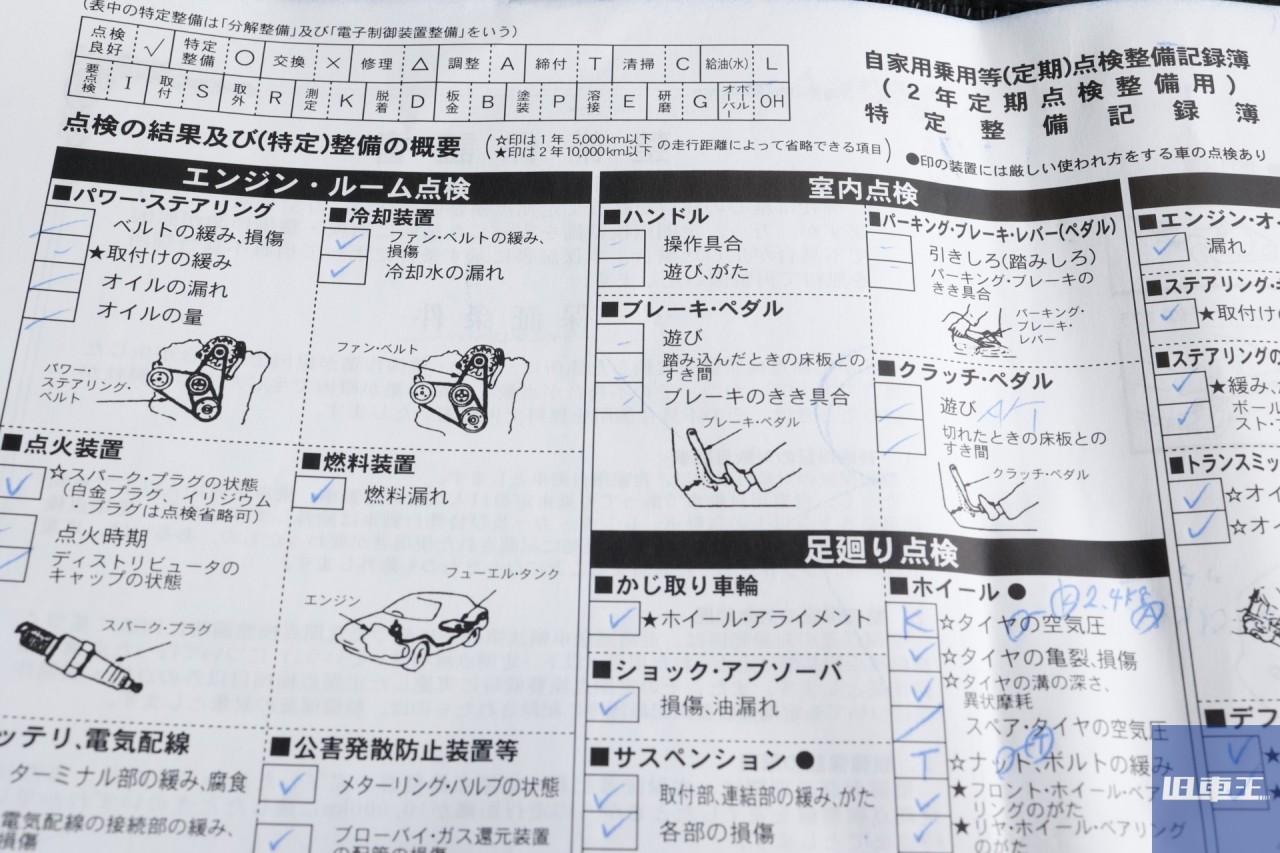 (表中の特定整備は「分解整備」及び「電子制御装置整備」をいう)
点検良好 ✓ 特定整備 ○ 交換 × 修理 △ 調整 A 締付 T 清掃 C 給油(水) L
要点検 I 取付 S 取外 R 測定 K 脱着 D 板金 B 塗装 P 溶接 E 研磨 G オーバーホール OH
自家用乗用等(定期)点検整備記録簿
(2年定期点検整備用)
特定整備記録簿
点検の結果及び(特定)整備の概要
(☆印は1年 5,000km以下
★印は2年10,000km以下 の走行距離によって省略できる項目)
●印の装置には厳しい使われ方をする車の点検あり
エンジン・ルーム点検
■パワー・ステアリング
ベルトの緩み、損傷
★取付けの緩み
オイルの漏れ
オイルの量
パワー・
ステアリング・
ベルト
■冷却装置
ファン・ベルトの緩み、
損傷
冷却水の漏れ
ファン・ベルト
■点火装置
☆スパーク・プラグの状態
(白金プラグ、イリジウム
プラグは点検省略可)
点火時期
ディストリビュータの
キャップの状態
スパーク・プラグ
■燃料装置
燃料漏れ
フューエル・タンク
エンジン
ッテリ、電気配線
ターミナル部の緩み、腐食
電気配線の接続部の緩み、
損傷
■公害発散防止装置等
メターリング・バルブの状態
ブローバイ・ガス還元装置
の配管の損傷
室内点検
■ハンドル
操作具合
遊び、がた
■ブレーキ・ペダル
遊び
踏み込んだときの床板との
すき間
ブレーキのきき具合
ブレーキ・ペダル
■パーキング・ブレーキ・レバー(ペダル)
引きしろ(踏みしろ)
パーキング・ブレーキの
きき具合
パーキング・
ブレーキ・
レバー
■クラッチ・ペダル
遊び A/T
切れたときの床板との
すき間
クラッチ・ペダル
足廻り点検
■かじ取り車輪
★ホイール・アライメント
■ショック・アブソーバ
損傷、油漏れ
■サスペンション ●
取付部、連結部の緩み、がた
各部の損傷
■ホイール ●
K ☆タイヤの空気圧 2.4
☆タイヤの亀裂、損傷
☆タイヤの溝の深さ、
異状摩耗
スペア・タイヤの空気圧
T ☆ナット、ボルトの緩み
★フロント・ホイール・ベア
リングのがた
★リヤ・ホイール・ベアリング
のがた
■エンジン・オ
漏れ
■ステアリング・
★取付けの
■ステアリングの
★緩み、
ボール
スト・
■トランスミッ
☆オイ
☆オイ
■デフ
旧車王